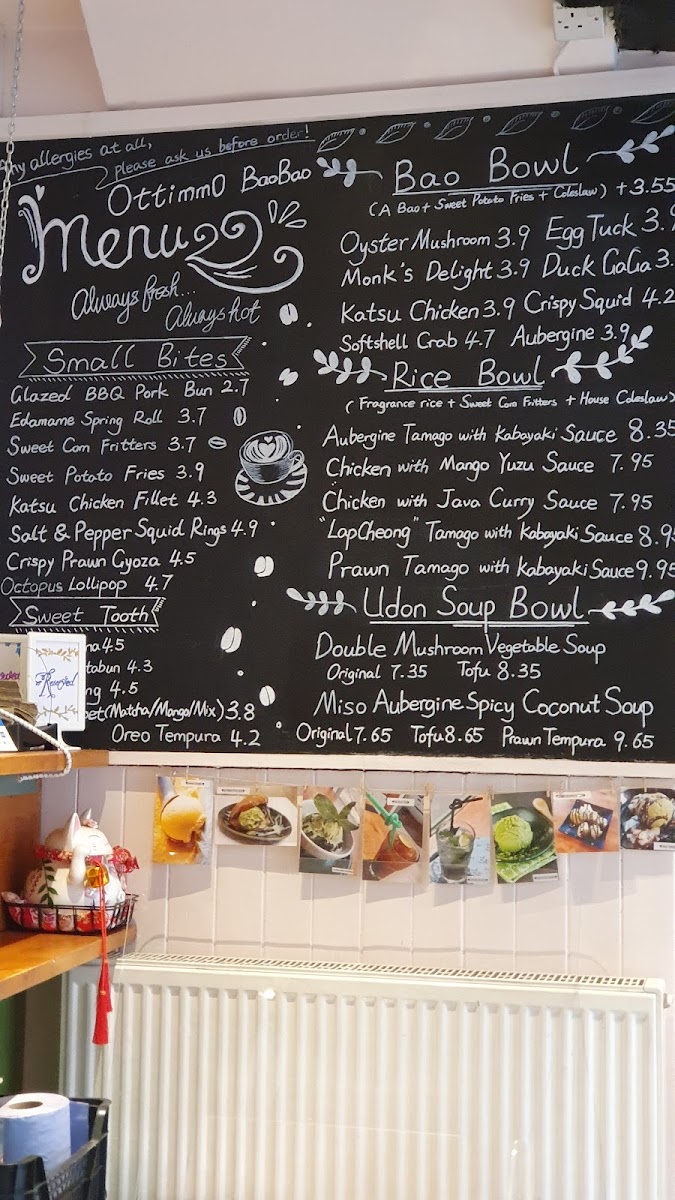 any allergies at all,
please ask us before order!
OttimmO BaoBao
Menu
Always fresh...
Always hot
Small Bites
Glazed BBQ Pork Bun 2.7
Edamame Spring Roll 3.7
Sweet Corn Fritters 3.7
Sweet Potato Fries 3.9
Katsu Chicken Fillet 4.3
Salt & Pepper Squid Rings 4.9
Crispy Prawn Gyoza 4.5
Octopus Lollipop 4.7
Sweet Tooth
na 4.5
tabun 4.3
ng 4.5
bet (Matcha/Mango/Mix) 3.8
Oreo Tempura 4.2
Reserved
Bao Bowl
(A Bao + Sweet Potato Fries + Coleslaw) +3.55
Oyster Mushroom 3.9 Egg Tuck 3.9
Monk's Delight 3.9 Duck GaGa 3.
Katsu Chicken 3.9 Crispy Squid 4.2
Softshell Crab 4.7 Aubergine 3.9
Rice Bowl
(Fragrance rice + Sweet Corn Fritters + House Coleslaw)
Aubergine Tamago with Kabayaki Sauce 8.35
Chicken with Mango Yuzu Sauce 7.95
Chicken with Java Curry Sauce 7.95
"LapCheong" Tamago with Kabayaki Sauce 8.95
Prawn Tamago with Kabayaki Sauce 9.95
Udon Soup Bowl
Double Mushroom Vegetable Soup
Original 7.35 Tofu 8.35
Miso Aubergine Spicy Coconut Soup
Original 7.65 Tofu 8.65 Prawn Tempura 9.65